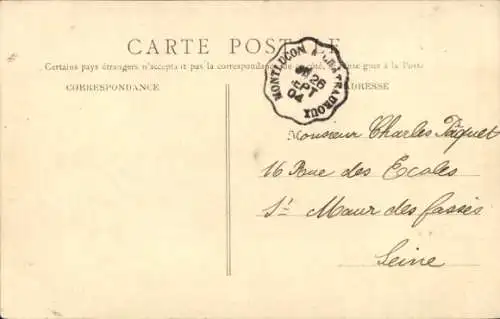 CARTE POSTALE
Certains pays étrangers n'accepta t pas la correspondance
à la Poste
CORRESPONDANCE
ADRESSE
MONTLUCON A
26
SEPT
04
Monsieur Charles Paquet
16 Rue des Ecoles
St Maur des fossés
Seine